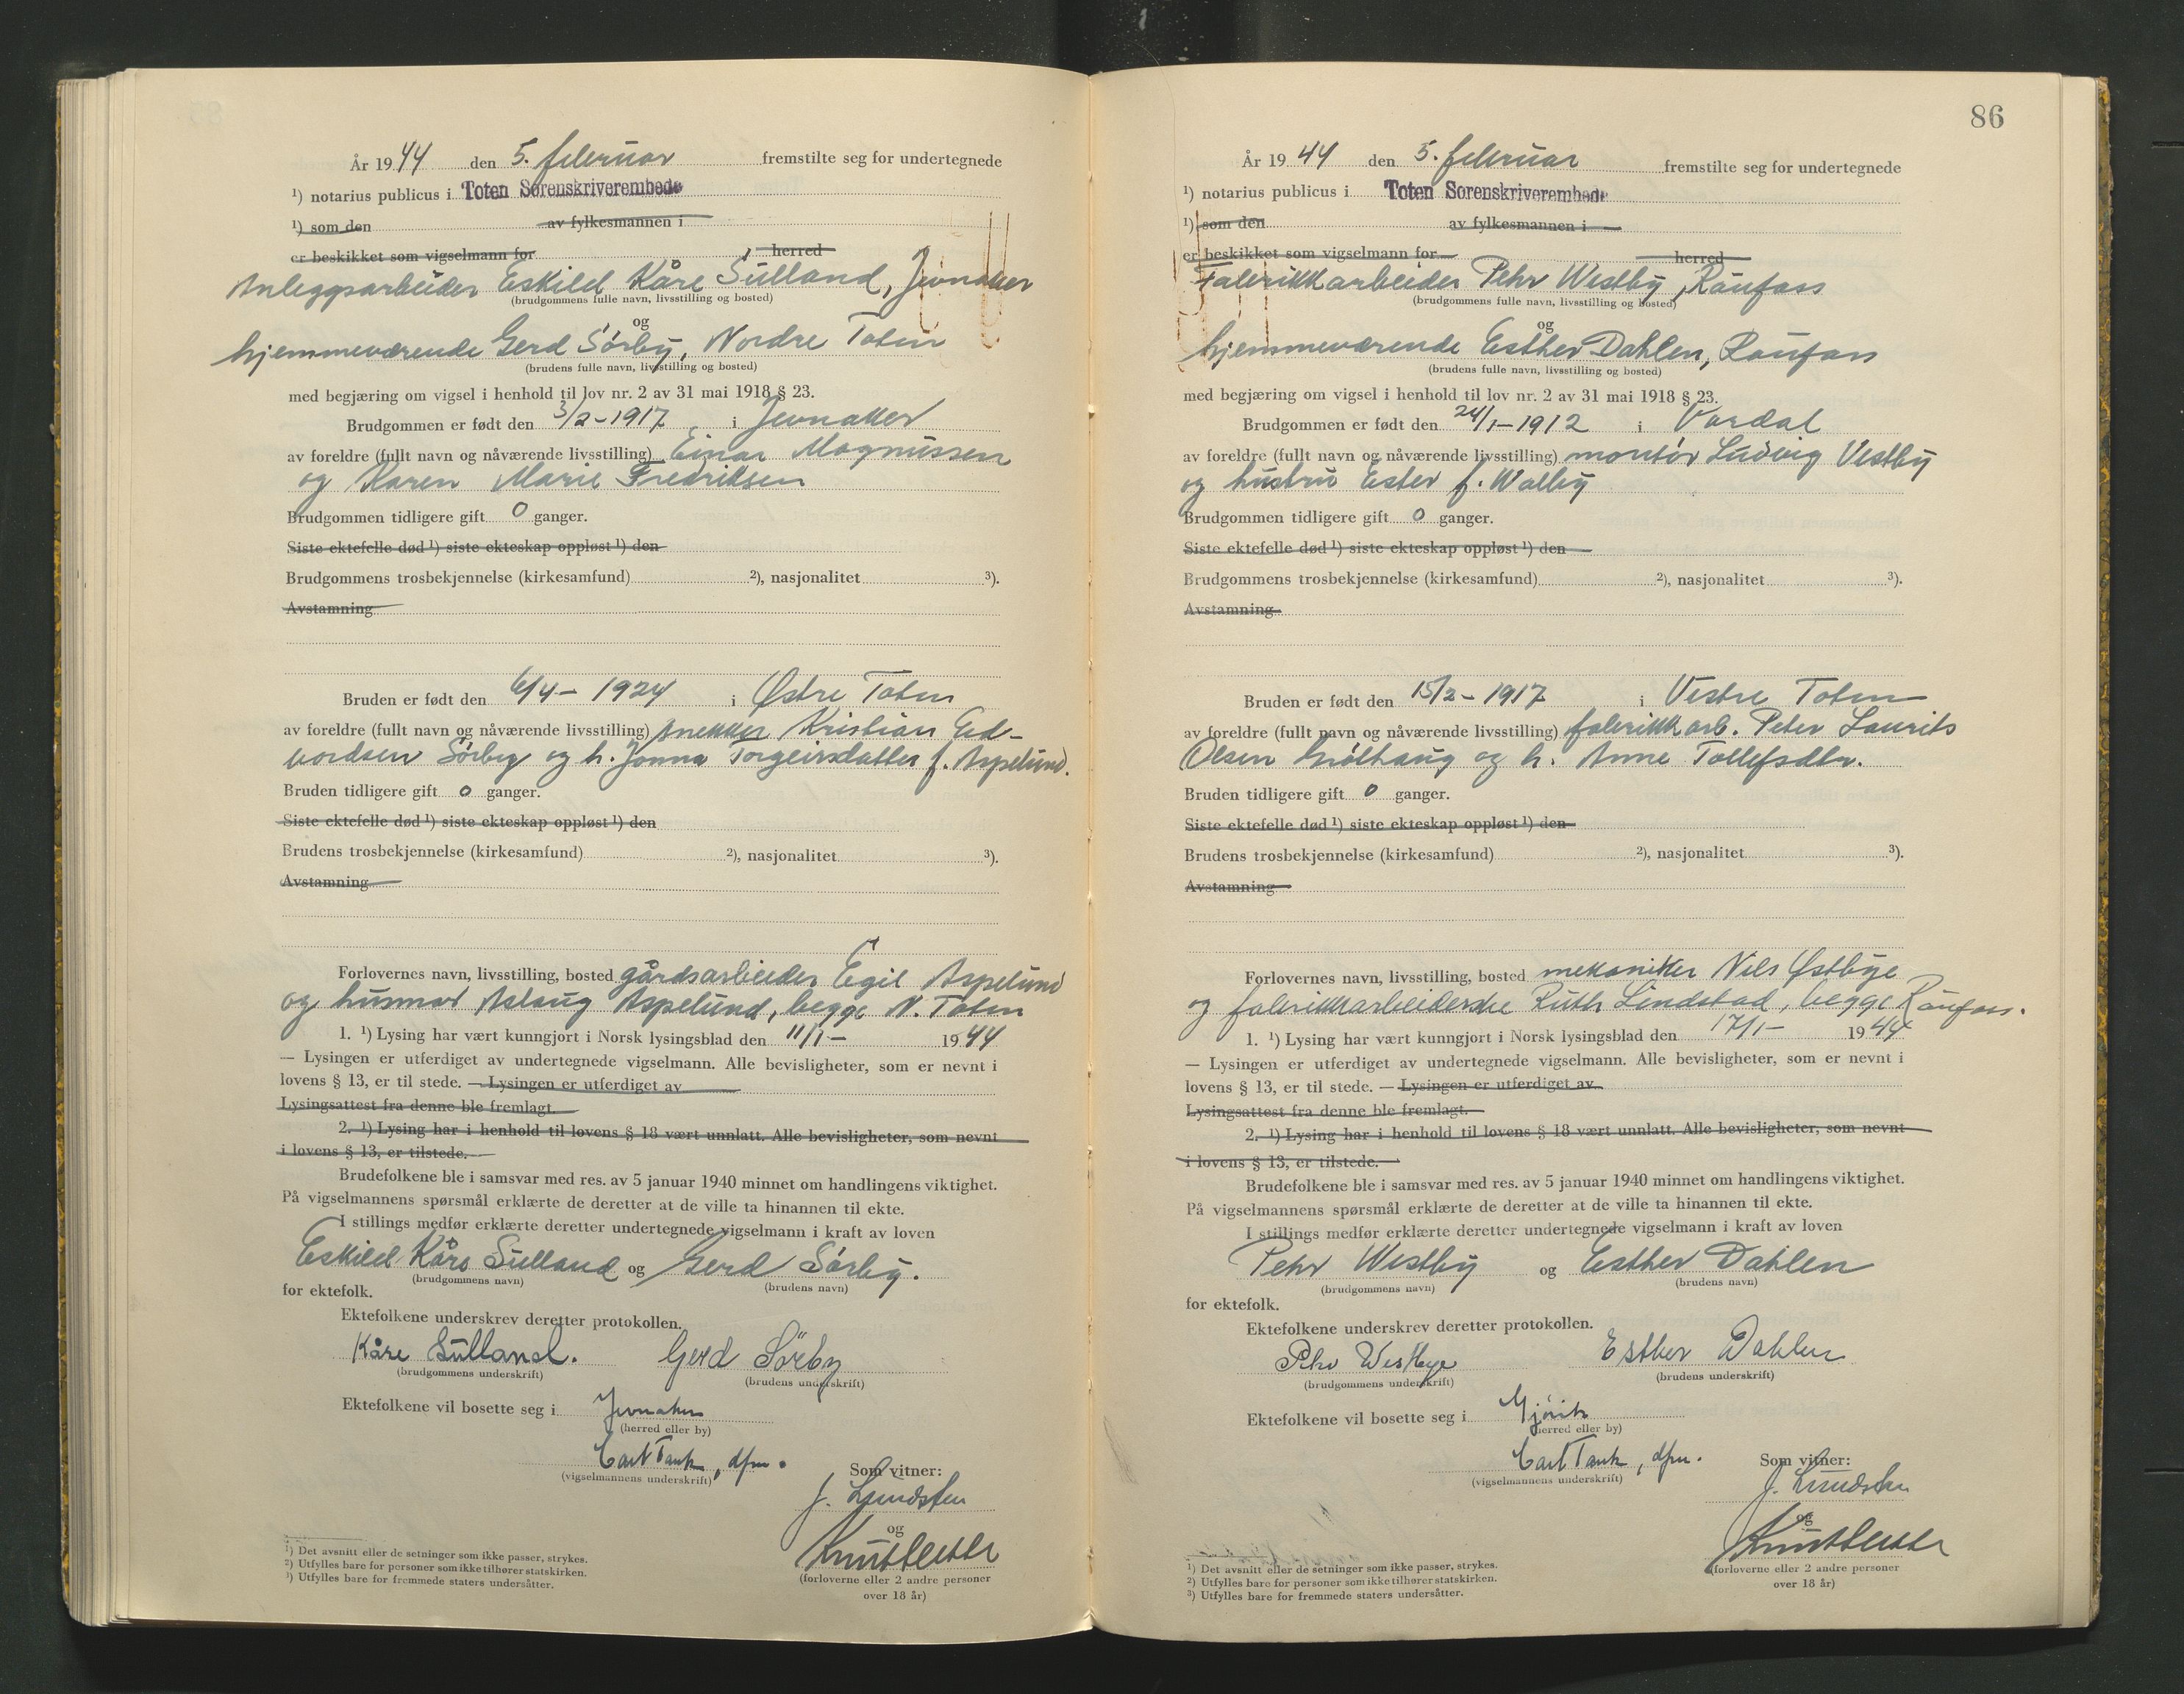 År 1944 den 5. februar fremstilte seg for undertegnede
¹) notarius publicus i Toten Sorenskriverembede
¹) som den av fylkesmannen i
er beskikket som vigselmann for herred
Anleggsarbeider Eskild Kåre Sulland, Jevnaker
(brudgommens fulle navn, livsstilling og bosted)
og
hjemmeværende Gerd Sørby, Nordre Toten
(brudens fulle navn, livsstilling og bosted)
med begjæring om vigsel i henhold til lov nr. 2 av 31 mai 1918 § 23.
Brudgommen er født den 3/2-1917 i Jevnaker
av foreldre (fullt navn og nåværende livsstilling) Einar Magnussen
og Karen Marie Fredriksen
Brudgommen tidligere gift 0 ganger.
Siste ektefelle død ¹) siste ekteskap oppløst ¹) den
Brudgommens trosbekjennelse (kirkesamfund) ²), nasjonalitet ³).
Avstamning
Bruden er født den 6/4- 1924 i Østre Toten
av foreldre (fullt navn og nåværende livsstilling) snekker Kristian Ed-
vardsen Sørby og h. Jonna Torgeirsdatter f. Aspelund.
Bruden tidligere gift 0 ganger.
Siste ektefelle død ¹) siste ekteskap oppløst ¹) den
Brudens trosbekjennelse (kirkesamfund) ²), nasjonalitet ³).
Avstamning
Forlovernes navn, livsstilling, bosted gårdsarbeider Egil Aspelund
og husmor Aslaug Aspelund, begge N. Toten
1. ¹) Lysing har vært kunngjort i Norsk lysingsblad den 11/1- 1944
— Lysingen er utferdiget av undertegnede vigselmann. Alle bevisligheter, som er nevnt i
lovens § 13, er til stede. — Lysingen er utferdiget av
Lysingsattest fra denne ble fremlagt.
2. ¹) Lysing har i henhold til lovens § 18 vært unnlatt. Alle bevisligheter, som nevnt
i lovens § 13, er tilstede.
Brudefolkene ble i samsvar med res. av 5 januar 1940 minnet om handlingens viktighet.
På vigselmannens spørsmål erklærte de deretter at de ville ta hinannen til ekte.
I stillings medfør erklærte deretter undertegnede vigselmann i kraft av loven
Eskild Kåre Sulland og Gerd Sørby.
(brudgommens navn) (brudens navn)
for ektefolk.
Ektefolkene underskrev deretter protokollen.
Kåre Sulland. Gerd Sörby
(brudgommens underskrift) (brudens underskrift)
Ektefolkene vil bosette seg i Jevnaker
(herred eller by)
Carl Tank, dfm.
(vigselmannens underskrift)
Som vitner:
J. Lundsten
og
(forloverne eller 2 andre personer
over 18 år)
¹) Det avsnitt eller de setninger som ikke passer, strykes.
²) Utfylles bare for personer som ikke tilhører statskirken.
³) Utfylles bare for fremmede staters undersåtter.
86
År 1944 den 5. februar fremstilte seg for undertegnede
¹) notarius publicus i Toten Sorenskriverembede
¹) som den av fylkesmannen i
er beskikket som vigselmann for herred
Fabrikkarbeider Pehr Westby, Raufoss
(brudgommens fulle navn, livsstilling og bosted)
og
hjemmeværende Esther Dahlen, Raufoss
(brudens fulle navn, livsstilling og bosted)
med begjæring om vigsel i henhold til lov nr. 2 av 31 mai 1918 § 23.
Brudgommen er født den 24/1-1912 i Vardal
av foreldre (fullt navn og nåværende livsstilling) montør Ludvig Vestby
og hustru Ester f. Walby
Brudgommen tidligere gift 0 ganger.
Siste ektefelle død ¹) siste ekteskap oppløst ¹) den
Brudgommens trosbekjennelse (kirkesamfund) ²), nasjonalitet ³).
Avstamning
Bruden er født den 15/2- 1917 i Vestre Toten
av foreldre (fullt navn og nåværende livsstilling) fabrikkarb. Peter Laurits
Olsen og h. Anne Tollefsdtr.
Bruden tidligere gift 0 ganger.
Siste ektefelle død ¹) siste ekteskap oppløst ¹) den
Brudens trosbekjennelse (kirkesamfund) ²), nasjonalitet ³).
Avstamning
Forlovernes navn, livsstilling, bosted mekaniker Nils Østbye
og fabrikkarbeiderske Ruth Lindstad, begge Raufoss.
1. ¹) Lysing har vært kunngjort i Norsk lysingsblad den 17/1- 1944
— Lysingen er utferdiget av undertegnede vigselmann. Alle bevisligheter, som er nevnt i
lovens § 13, er til stede. — Lysingen er utferdiget av
Lysingsattest fra denne ble fremlagt.
2. ¹) Lysing har i henhold til lovens § 18 vært unnlatt. Alle bevisligheter, som nevnt
i lovens § 13, er tilstede.
Brudefolkene ble i samsvar med res. av 5 januar 1940 minnet om handlingens viktighet.
På vigselmannens spørsmål erklærte de deretter at de ville ta hinannen til ekte.
I stillings medfør erklærte deretter undertegnede vigselmann i kraft av loven
Pehr Westby og Esther Dahlen
(brudgommens navn) (brudens navn)
for ektefolk.
Ektefolkene underskrev deretter protokollen.
Pehr Westbye Esther Dahlen
(brudgommens underskrift) (brudens underskrift)
Ektefolkene vil bosette seg i Gjøvik
(herred eller by)
Carl Tank, dfm.
(vigselmannens underskrift)
Som vitner:
J. Lundsten
og
(forloverne eller 2 andre personer
over 18 år)
¹) Det avsnitt eller de setninger som ikke passer, strykes.
²) Utfylles bare for personer som ikke tilhører statskirken.
³) Utfylles bare for fremmede staters undersåtter.